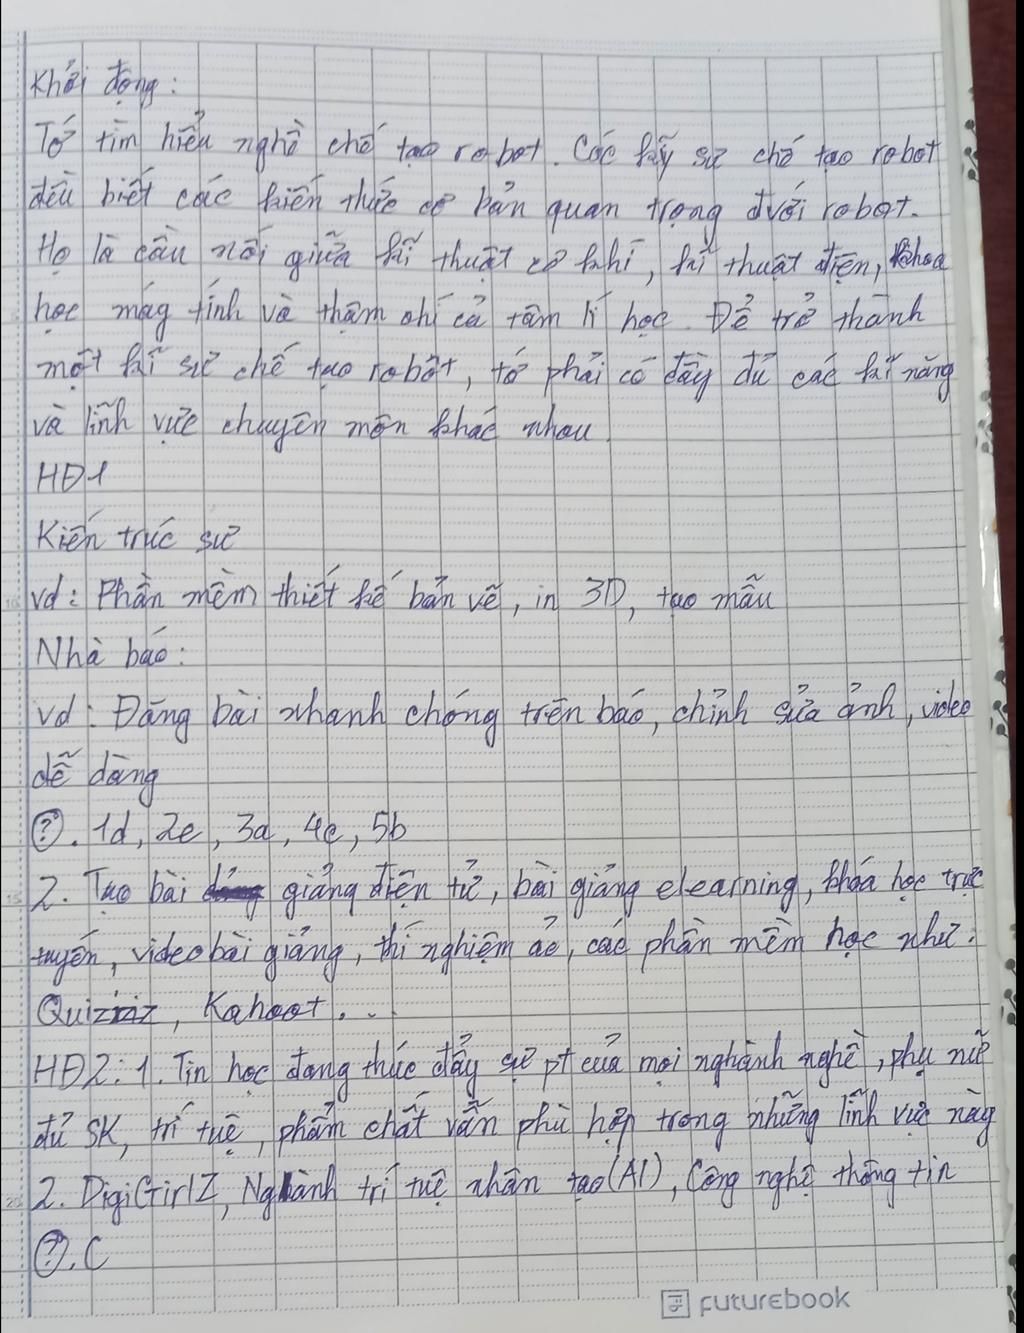 Khởi động:
Tớ tìm hiểu nghề chế tạo robot. Các kỹ sư chế tạo robot
đều biết các kiến thức cơ bản quan trọng đvới robot.
Họ là cầu nối giữa kĩ thuật cơ khí, kĩ thuật điện, khoa
học máy tính và thậm chí cả tâm lí học. Để trở thành
một kĩ sư chế tạo robot, tớ phải có đầy đủ các kĩ năng
và lĩnh vực chuyên môn khác nhau.
HĐ1
Kiến trúc sư
vd: Phần mềm thiết kế bản vẽ, in 3D, tạo mẫu
Nhà báo:
Vd: Đăng bài nhanh chóng trên báo, chỉnh sửa ảnh, video
dễ dàng
?. 1d, 2e, 3a, 4c, 5b
2. Tạo bài giảng điện tử, bài giảng elearning, khóa học trực
tuyến, video bài giảng, thí nghiệm ảo, các phần mềm học như:
Quizziz, Kahoot...
HĐ2: 1. Tin học đang thúc đẩy sự pt của mọi nghành nghề, phụ nữ
đủ SK, trí tuệ, phẩm chất vẫn phù hợp trong những lĩnh vực này
2. DigiGirlZ, Nghành trí tuệ nhân tạo (AI), Công nghệ thông tin
?. C
FUTUREBOOK